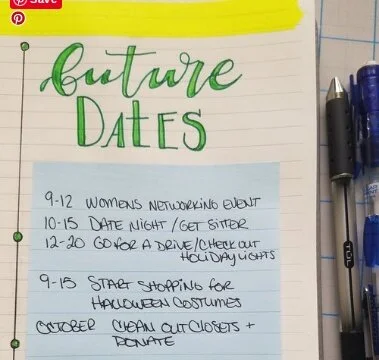 Save
future
DATES
9-12 WOMENS NETWORKING EVENT
10-15 DATE NIGHT / GET SITTER
12-20 GO FOR A DRIVE/CHECK OUT
HOLIDAY LIGHTS
9-15 START SHOPPING FOR
HALLOWEEN COSTUMES
OCTOBER CLEAN OUT CLOSETS +
DONATE